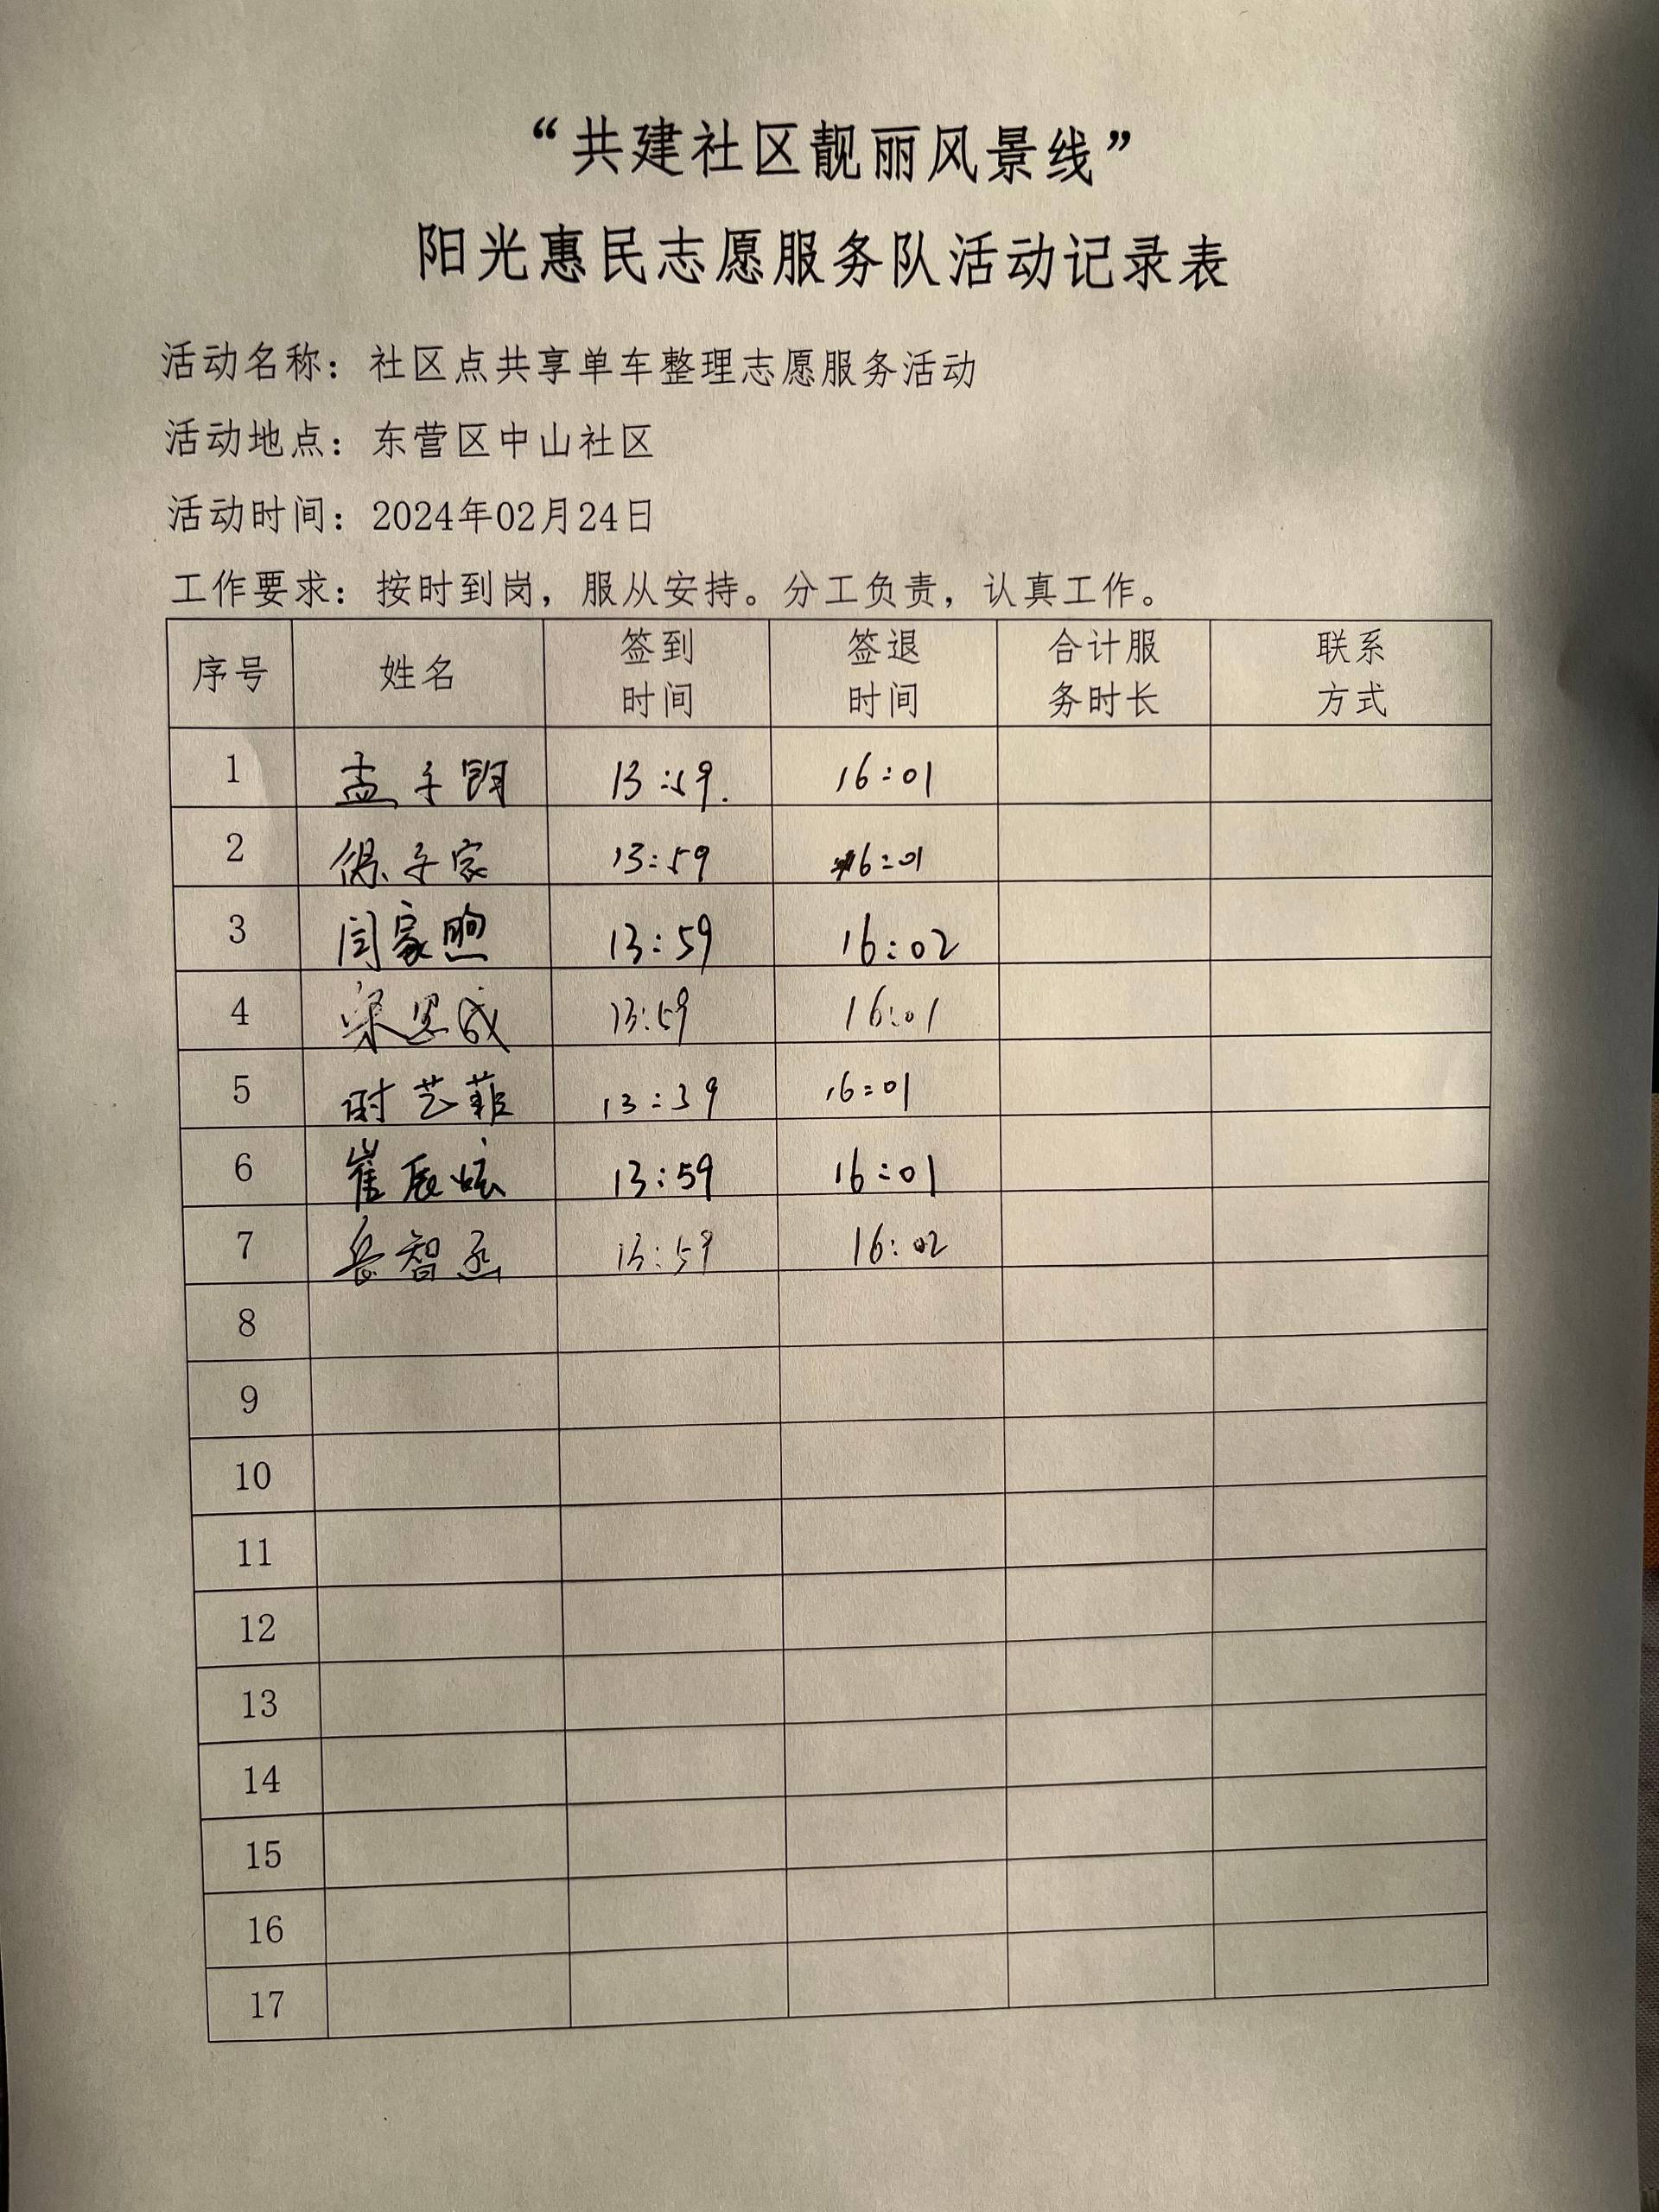 “共建社区靓丽风景线”
阳光惠民志愿服务队活动记录表
活动名称：社区点共享单车整理志愿服务活动
活动地点：东营区中山社区
活动时间：2024年02月24日
工作要求：按时到岗，服从安持。分工负责，认真工作。
序号 姓名 签到时间 签退时间 合计服务时长 联系方式
1 孟子钥 13:59. 16:01
2 徐子家 13:59 16:01
3 闫家煦 13:59 16:02
4 宋思成 13:59 16:01
5 时艺菲 13:39 16:01
6 崔辰炫 13:59 16:01
7 岳智丞 13:59 16:02
8
9
10
11
12
13
14
15
16
17